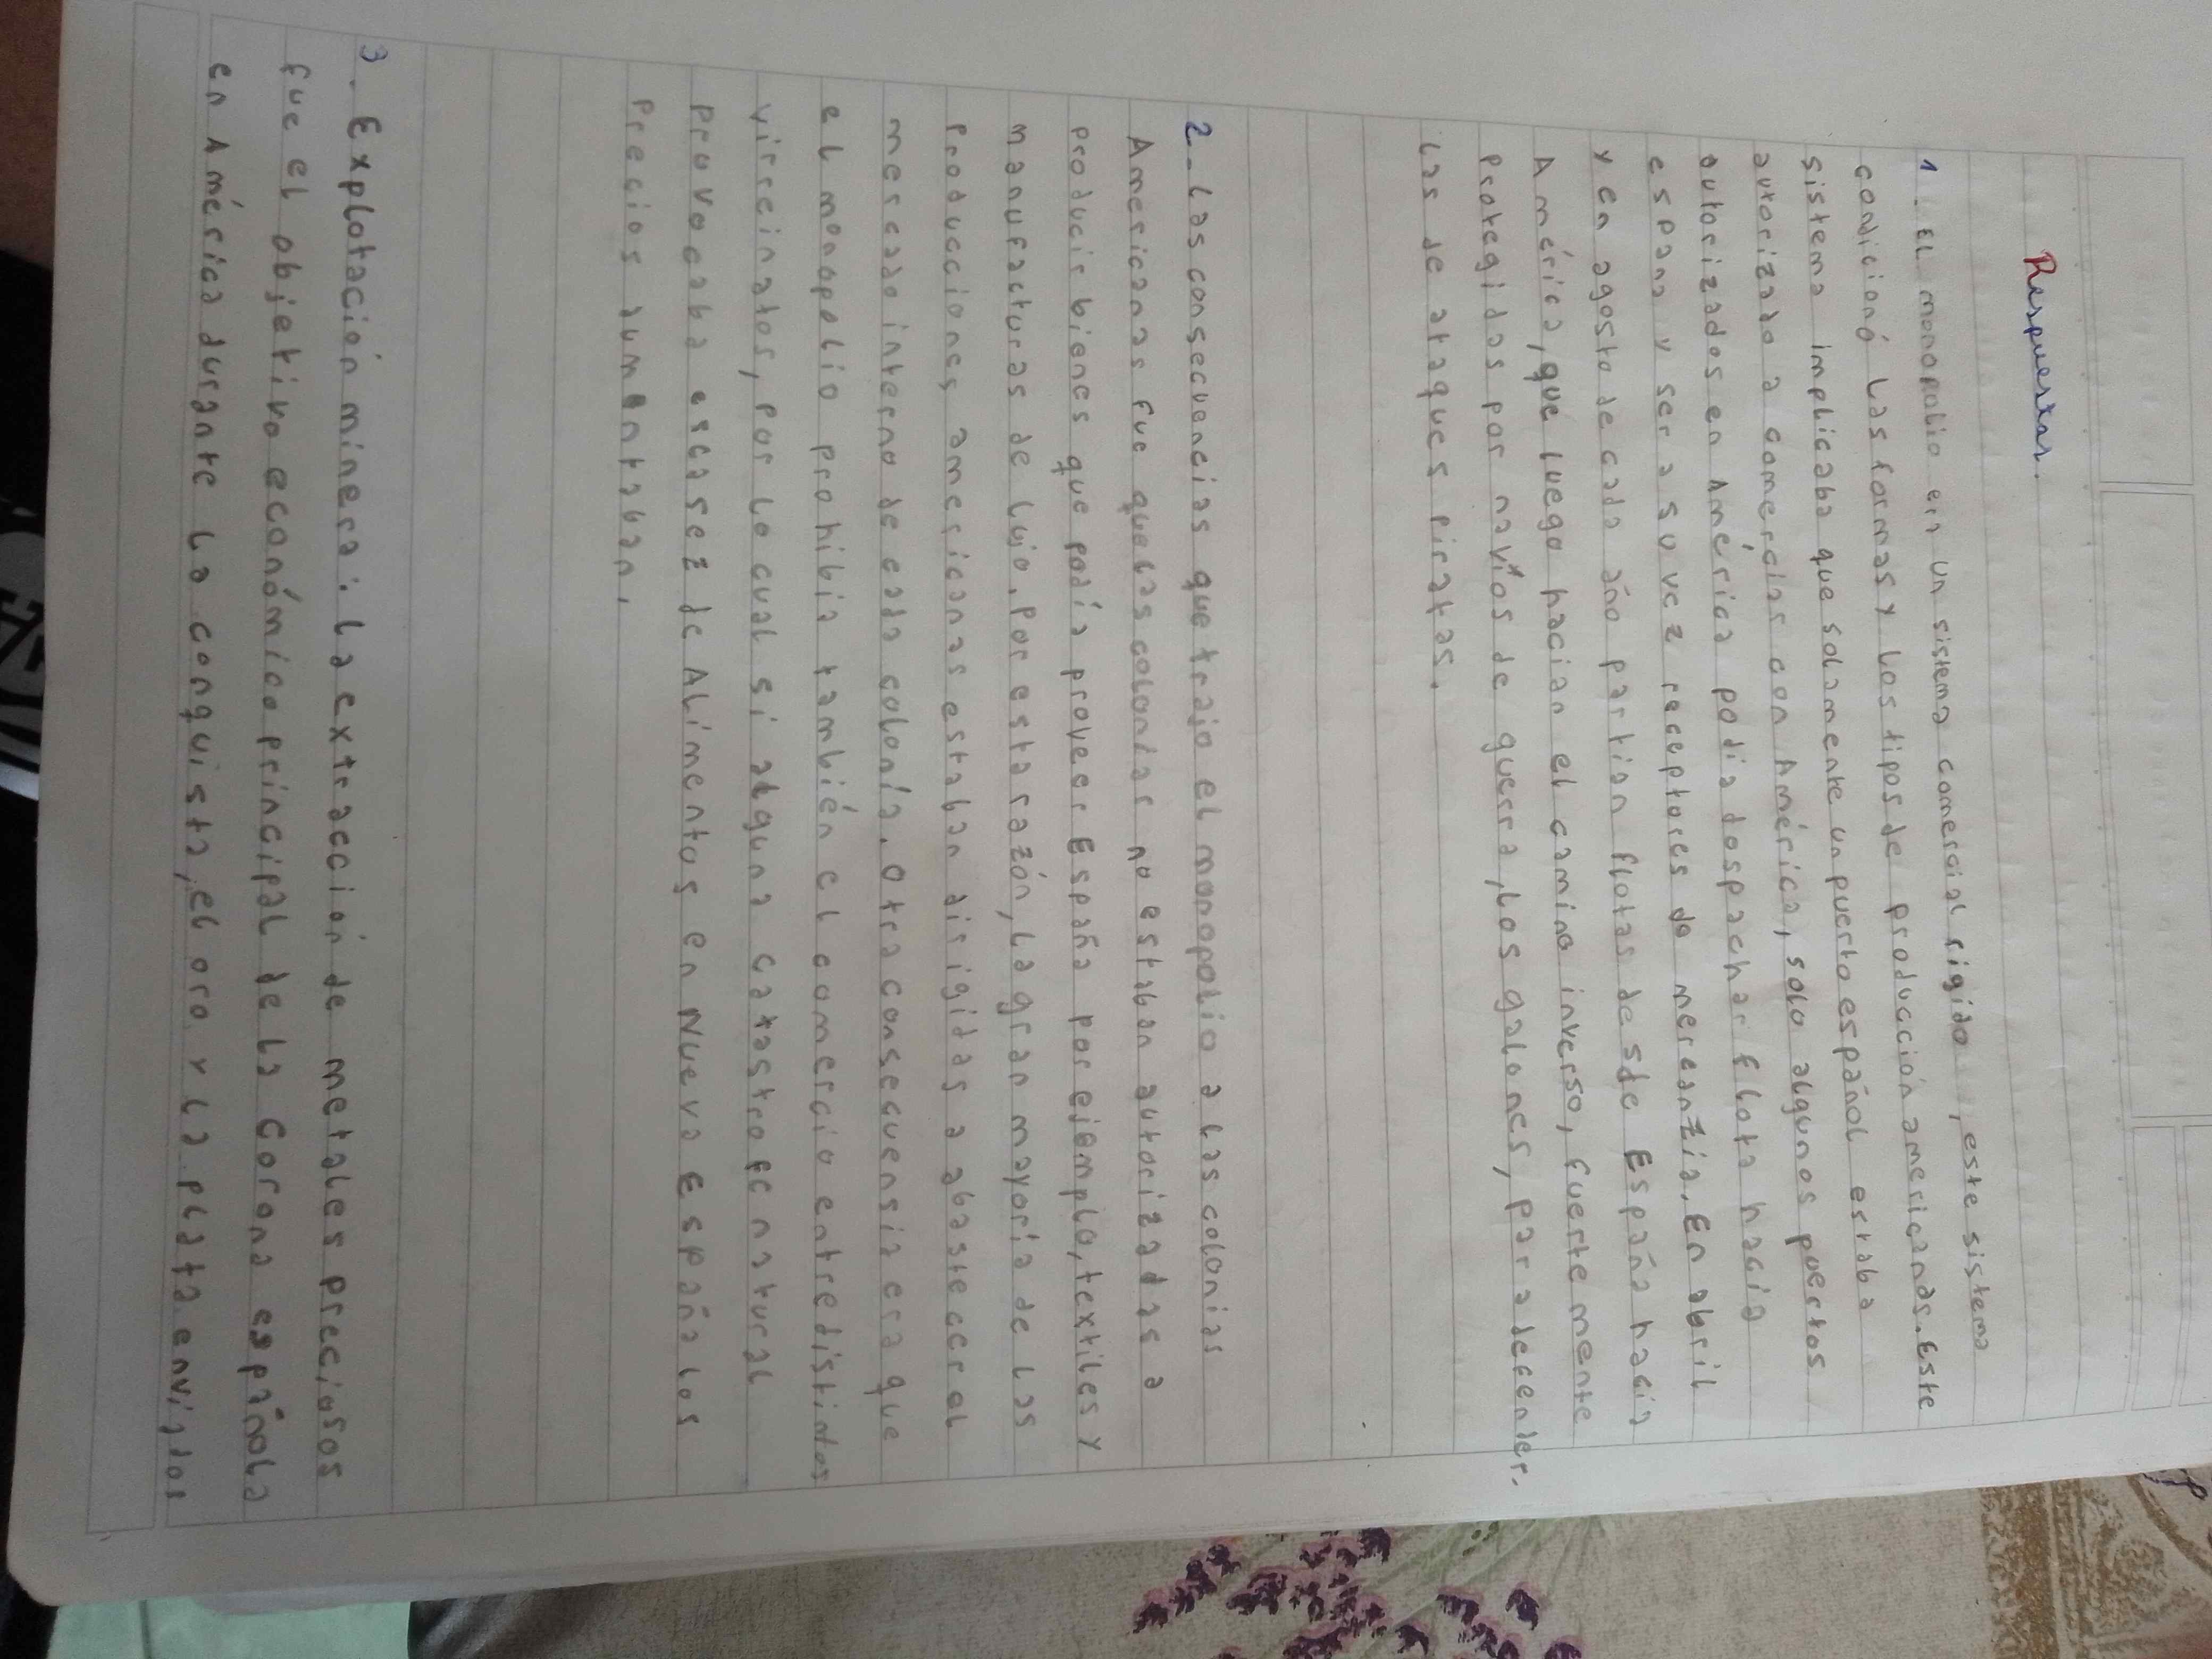 Respuestas.
1. El monopolio era un sistema comercial rigido, este sistema
condicionó las formas y los tipos de producción americanas. Este
sistema implicaba que solamente un puerto español estaba
autorizado a comerciar con América, solo algunos puertos
autorizados en América podia despachar flota hacia
espana y ser a su vez receptores de mercanzía. En abril
y en agosto de cada año partian flotas desde España hacia
América, que luego hacian el camino inverso, fuertemente
protegidas por navíos de guerra, los galones, para defender-
las de ataques piratas.
2_ las consecuencias que trajo el monopolio a las colonias
Americanas fue que las colonias no estaban autorizadas a
producir bienes que podía proveer España por ejemplo, textiles y
manufacturas de lujo. Por esta razón, la gran mayoría de las
producciones americanas estaban dirigidas a abastecer al
mercado interno de cada colonia. Otra consecuensia era que
el monopolio prohibia también el comercio entre distintos
virreinatos, por lo cual si alguna catastrofe natural
provocaba escasez de Alimentos en Nueva España los
precios aumentaban.
3_ Explotación minera: la extracción de metales preciosos
fue el objetivo económico principal de la corona española
en América durante la conquista, el oro y la plata enviados